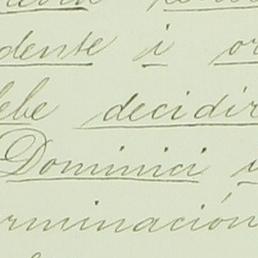 dente i or
debe decidir
Dominici i
rminación